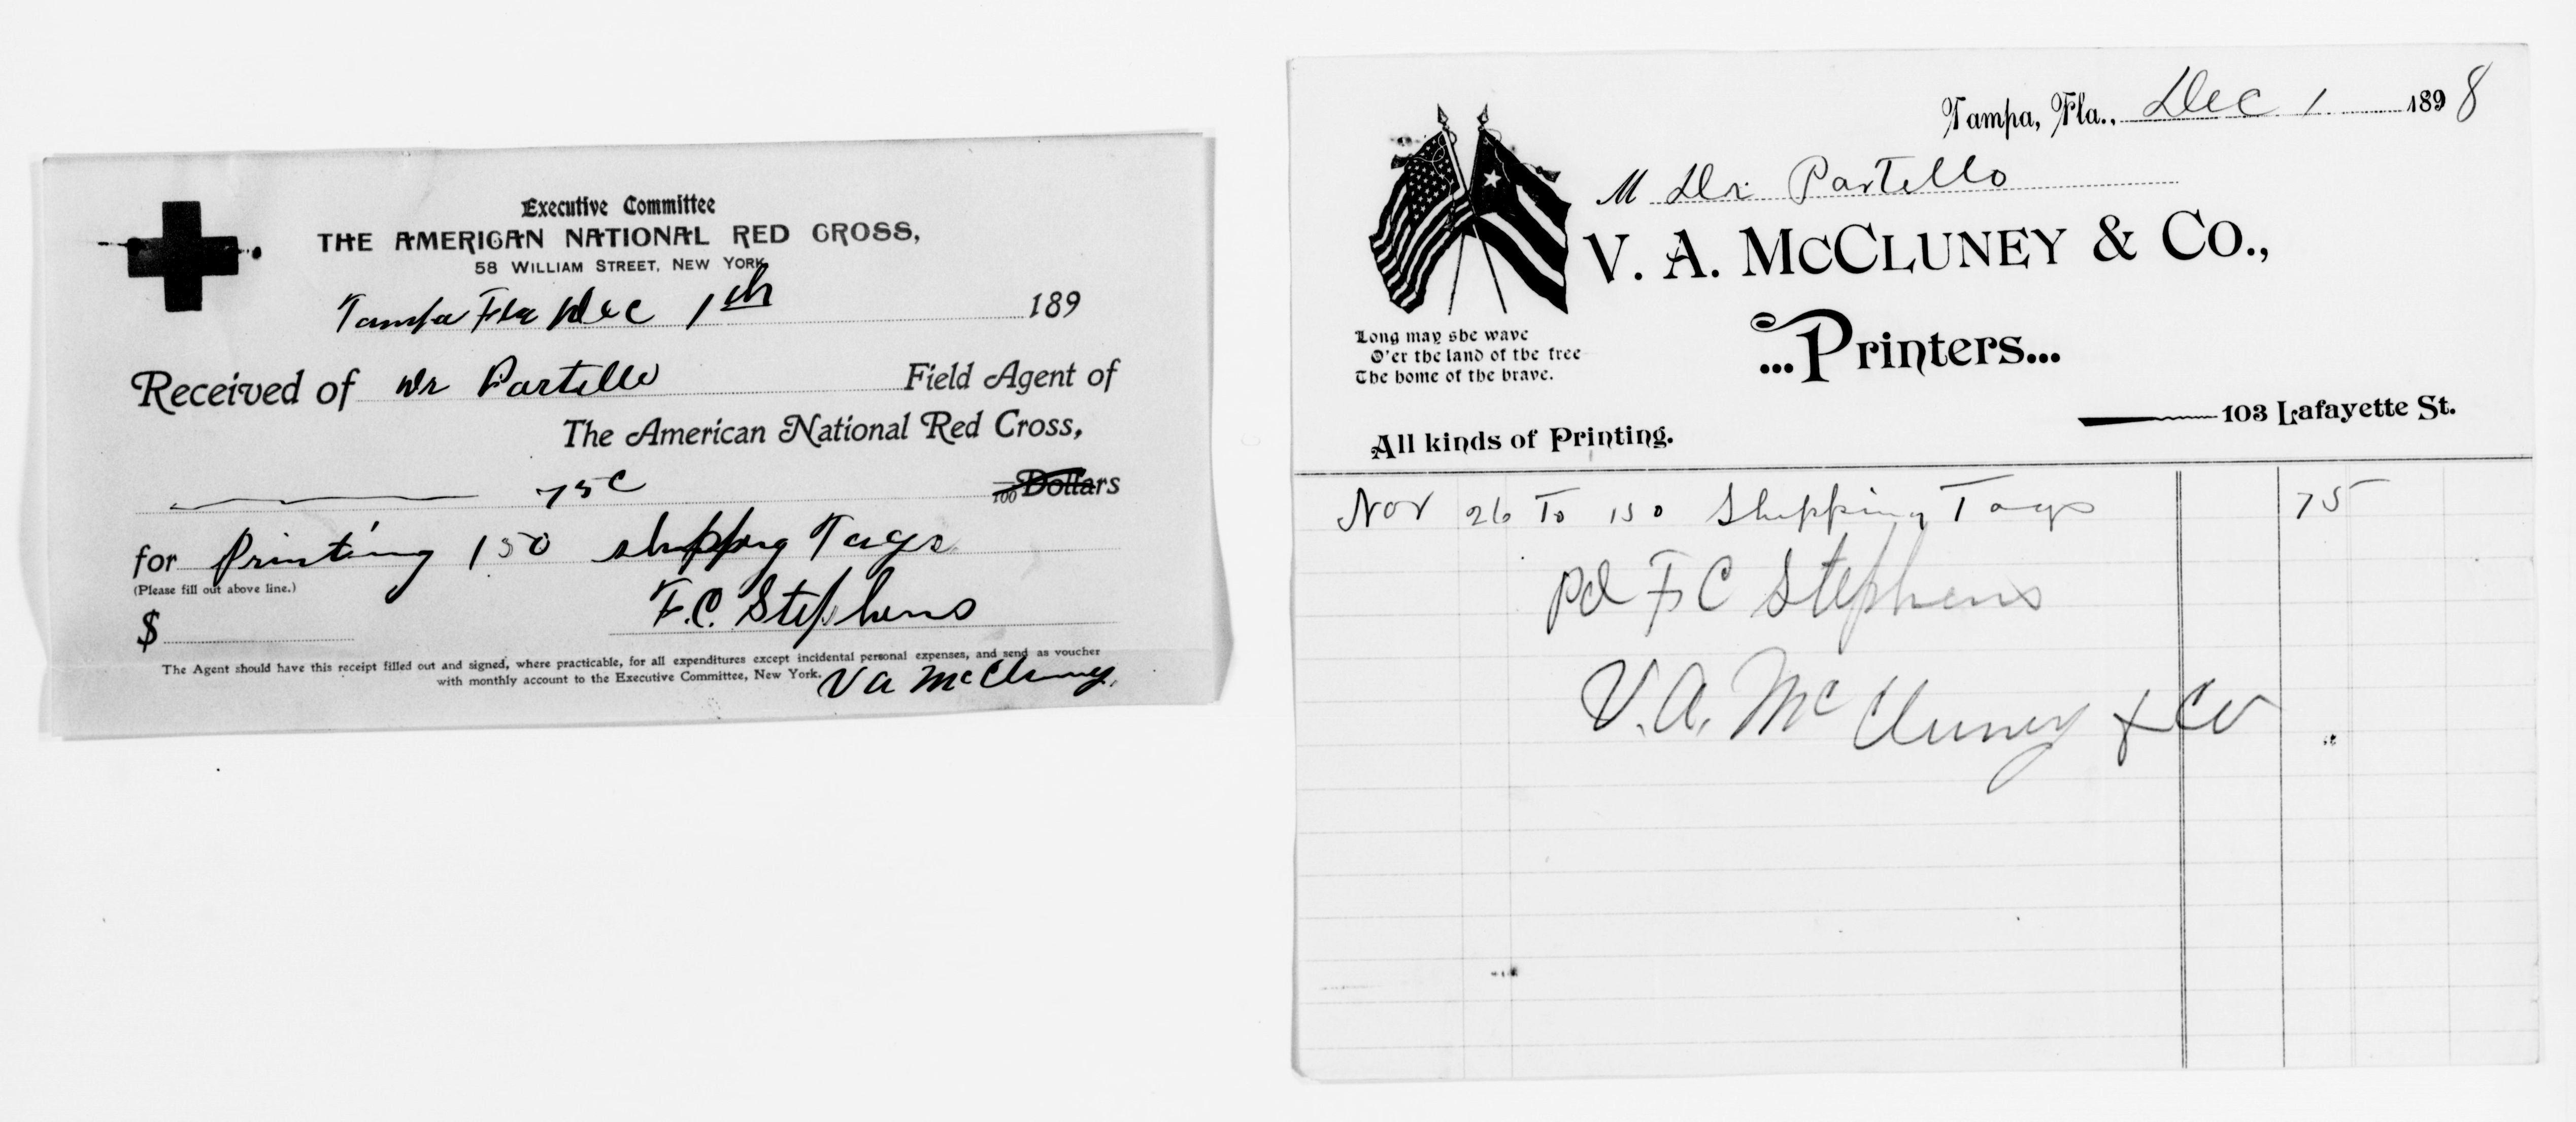 Executive Committee
THE AMERICAN NATIONAL RED CROSS,
58 WILLIAM STREET, NEW YORK
Tampa Fla Dec 1th 189
Received of Dr Partello Field Agent of
The American National Red Cross,
75c /100 Dollars
for Printing 150 shipping Tags
(Please fill out above line.)
F.C. Stephens
$
The Agent should have this receipt filled out and signed, where practicable, for all expenditures except incidental personal expenses, and send as voucher
with monthly account to the Executive Committee, New York.
V A McCluney,
Tampa, Fla., Dec 1 1898
M Dr Partello
V. A. McCLUNEY & Co.,
...Printers...
Long may she wave
O'er the land of the free
The home of the brave.
103 Lafayette St.
All kinds of Printing.
Nov 26 To 150 Shipping Tags 75
Pd F C Stephens
V. A. McCluney & Co